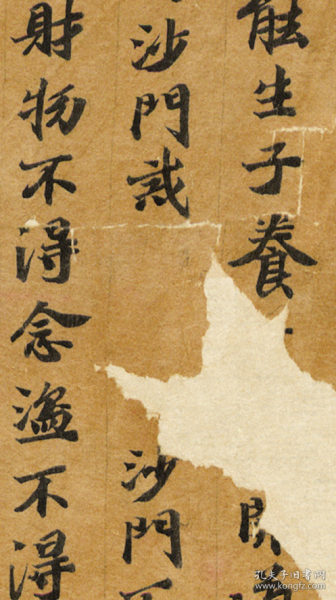 能生子養
沙門戒
沙門
財物不得念盜不得
孔夫子旧书网
www.kongfz.com